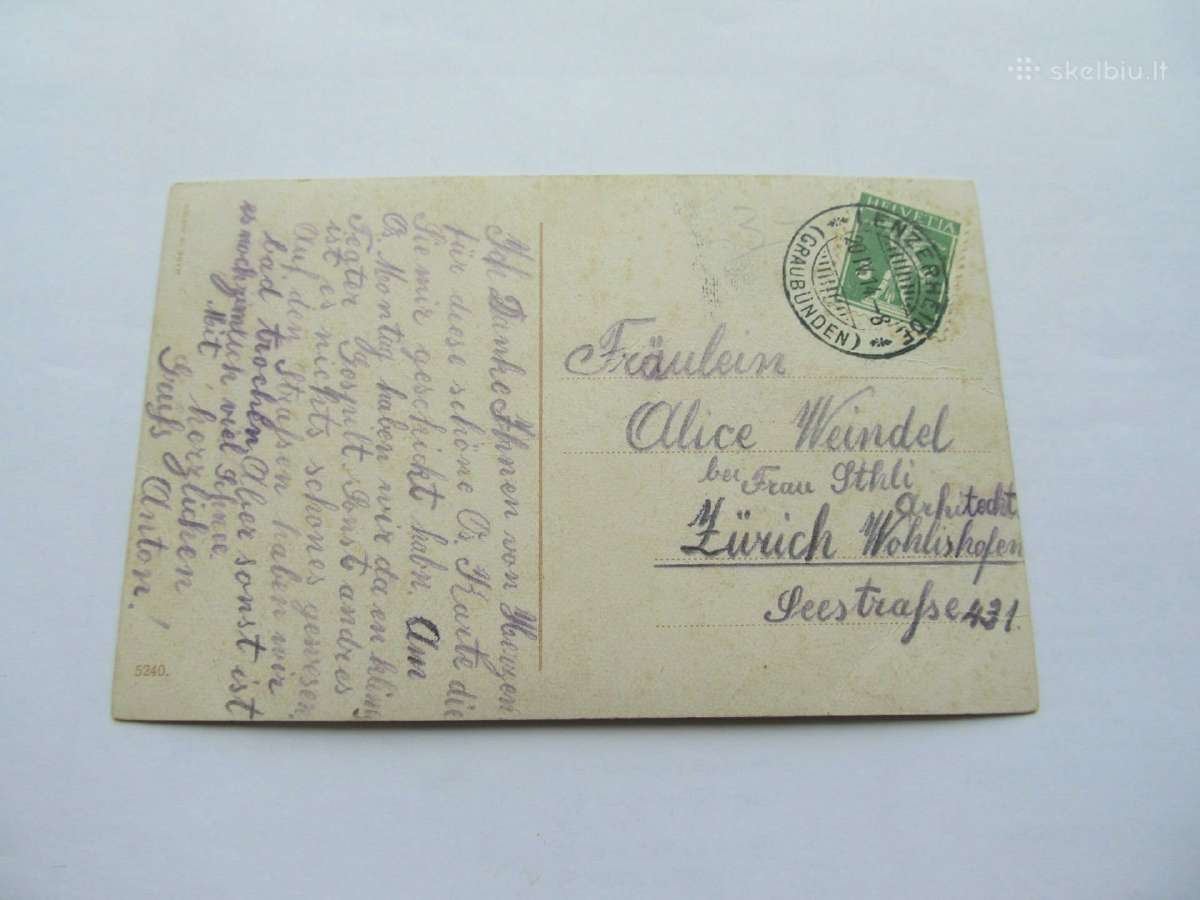 skelbiu.lt
HELVETIA
LENZERHEIDE
(GRAUBÜNDEN)
Fräulein
Alice Weindel
bei Frau Sthli
Arhitecht
Zürich Wohlishofen
Seestraſse 431.
Ich Danke Ihnen von Herzen
für deese schöne Os Karte die
Sie mir geschickt habn. Am
Os Montag haben wir da en klin
Teater Gospilt Sonst andres
ist es nichts schones gewesen
Auf den Straſsen haben wir
bad trochen Aber sonst ist
es noch zimlich viel Schnee
Mit herzlichen
Gruſs Anton!
5240.